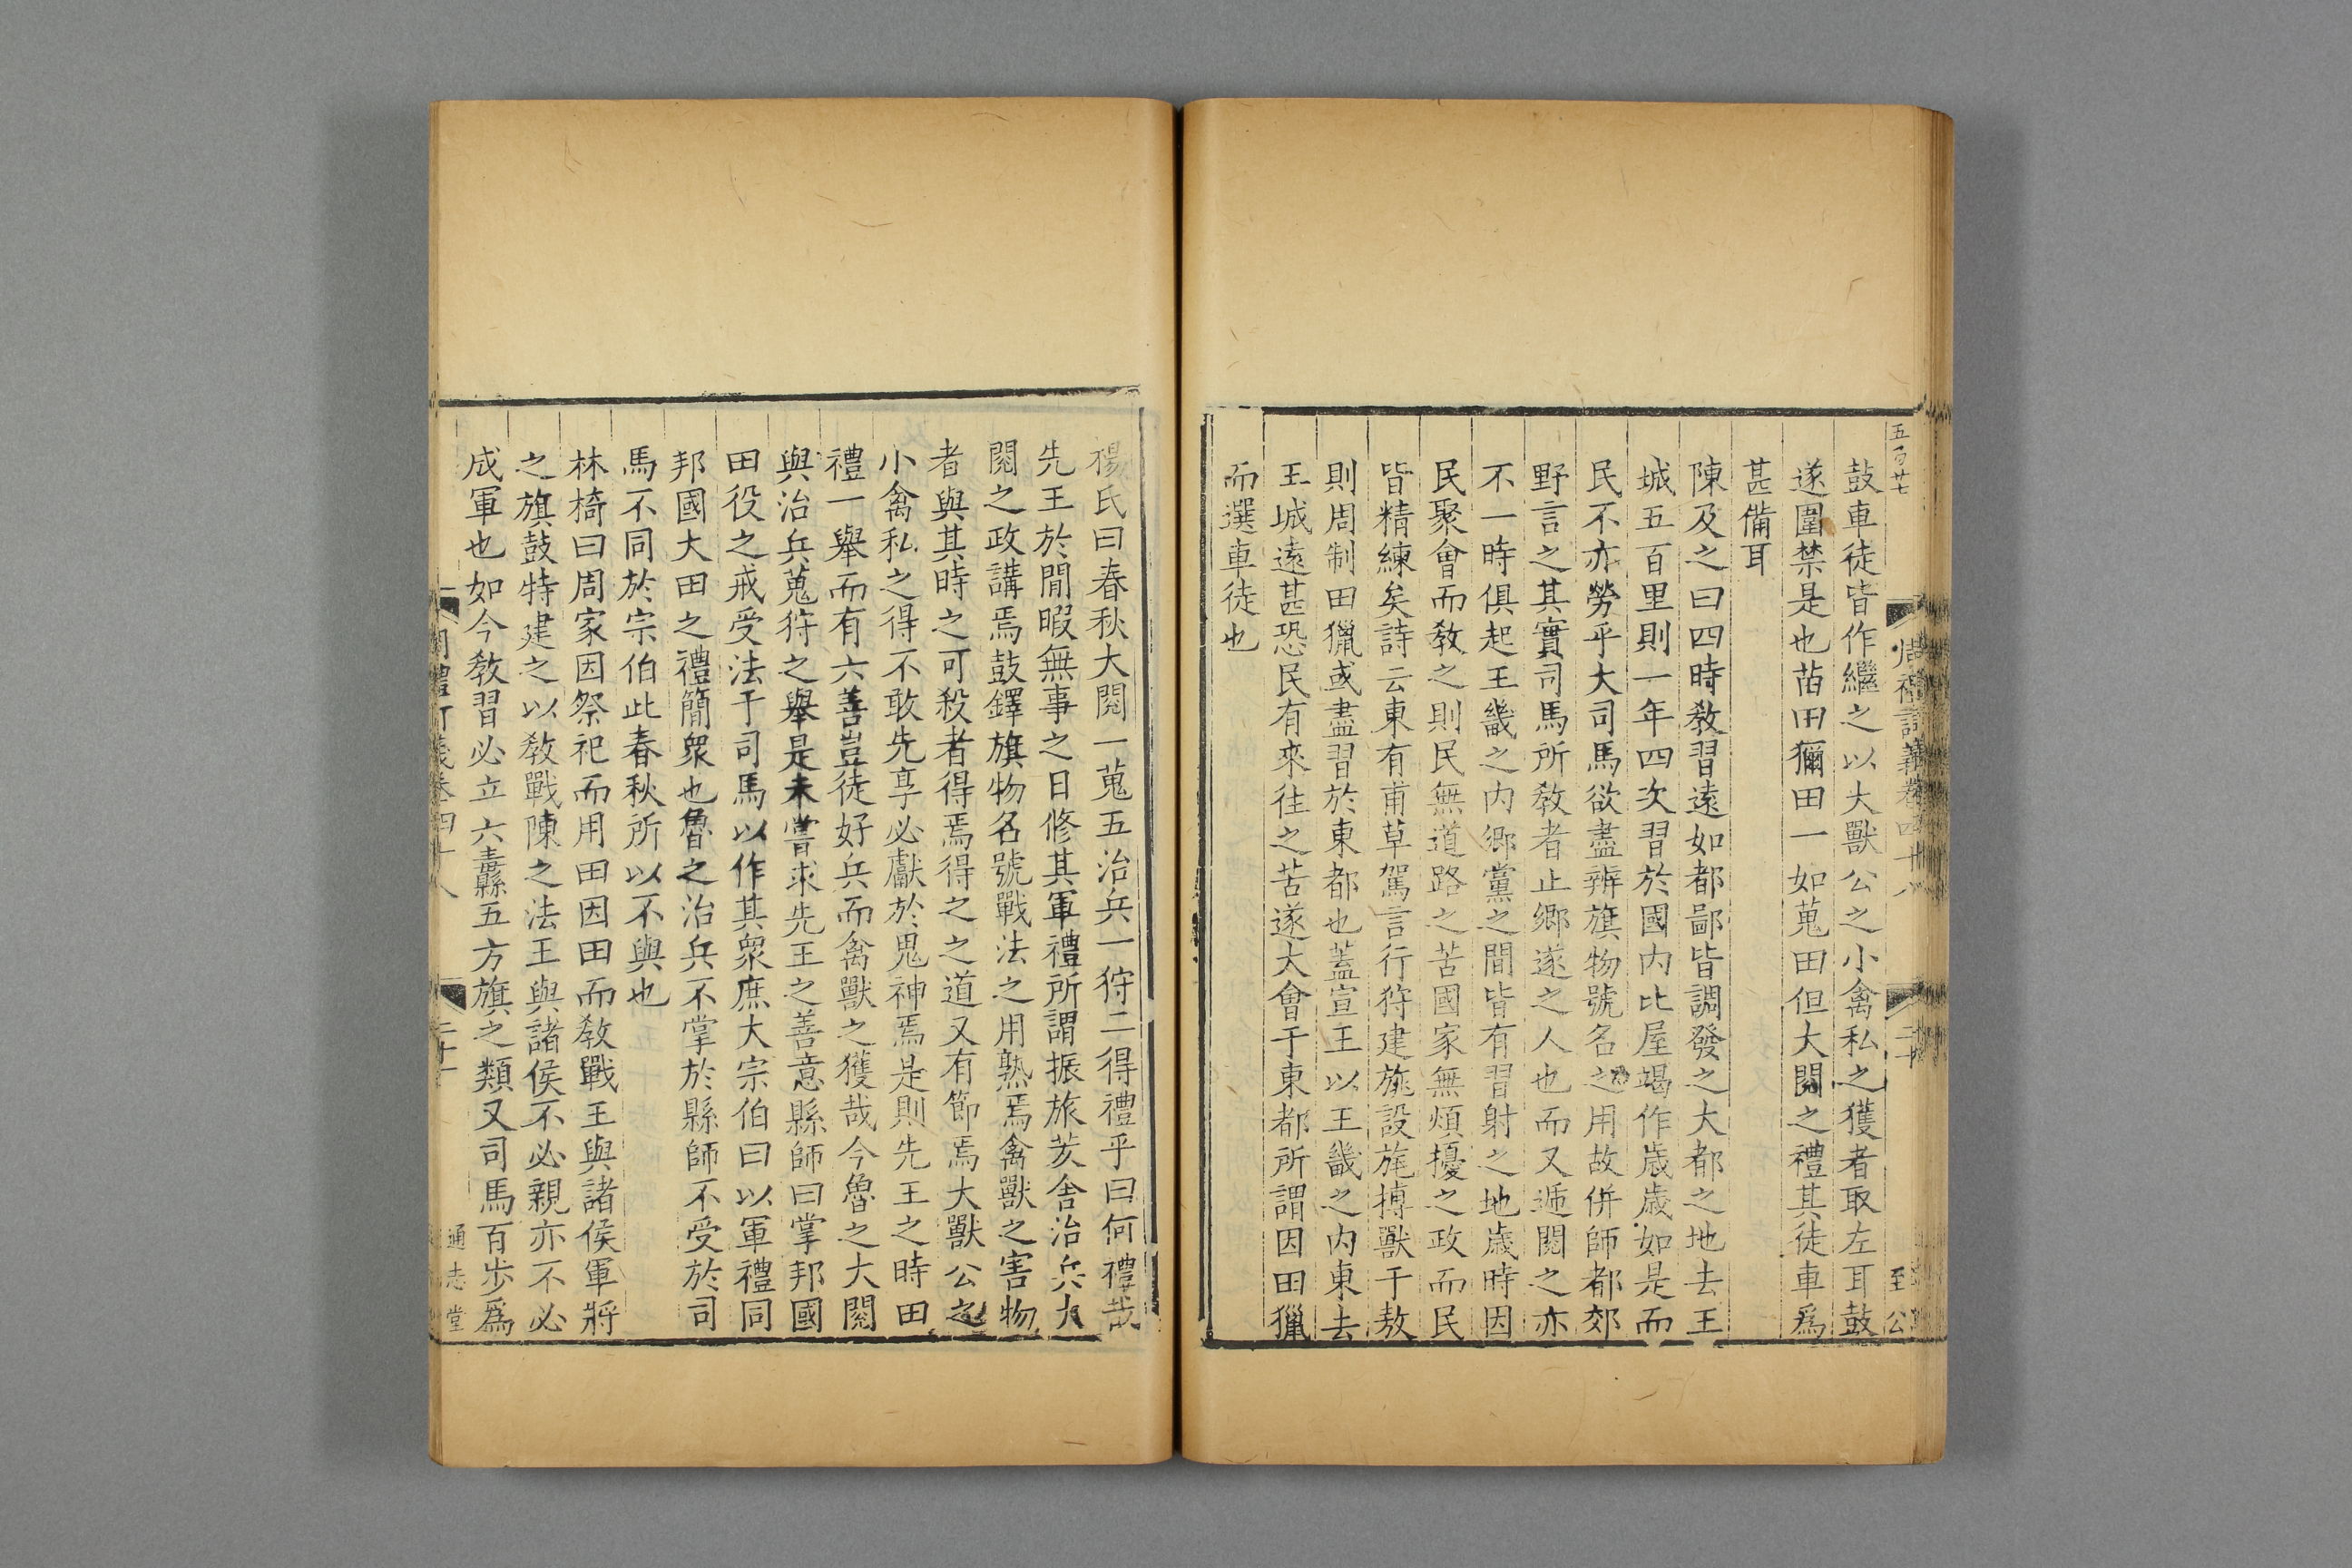 五百廿七
周禮訂義卷四十八
二十
至公
鼓車徒皆作繼之以大獸公之小禽私之獲者取左耳鼓
遂圍禁是也苗田獮田一如蒐田但大閱之禮其徒車爲
甚備耳
陳及之曰四時敎習遠如都鄙皆調發之大都之地去王
城五百里則一年四次習於國內比屋竭作歲歲如是而
民不亦勞乎大司馬欲盡辨旗物號名之用故併師都郊
野言之其實司馬所敎者止鄉遂之人也而又遞閱之亦
不一時俱起王畿之內鄉黨之間皆有習射之地歲時因
民聚會而敎之則民無道路之苦國家無煩擾之政而民
皆精練矣詩云東有甫草駕言行狩建旐設旄搏獸于敖
則周制田獵或盡習於東都也蓋宣王以王畿之內東去
王城遠甚恐民有來往之苦遂大會于東都所謂因田獵
而選車徒也
楊氏曰春秋大閱一蒐五治兵一狩二得禮乎曰何禮哉
先王於閒暇無事之日修其軍禮所謂振旅茇舍治兵大
閱之政講焉鼓鐸旗物名號戰法之用熟焉禽獸之害物
者與其時之可殺者得焉得之之道又有節焉大獸公之
小禽私之得不敢先享必獻於鬼神焉是則先王之時田
禮一舉而有六善豈徒好兵而禽獸之獲哉今魯之大閱
與治兵蒐狩之舉是未嘗求先王之善意縣師曰掌邦國
田役之戒受法于司馬以作其衆庶大宗伯曰以軍禮同
邦國大田之禮簡衆也魯之治兵不掌於縣師不受於司
馬不同於宗伯此春秋所以不與也
林椅曰周家因祭祀而用田因田而敎戰王與諸侯軍將
之旗鼓特建之以敎戰陳之法王與諸侯不必親亦不必
成軍也如今敎習必立六纛縣五方旗之類又司馬百步爲
周禮訂義卷四十八
二十一
通志堂